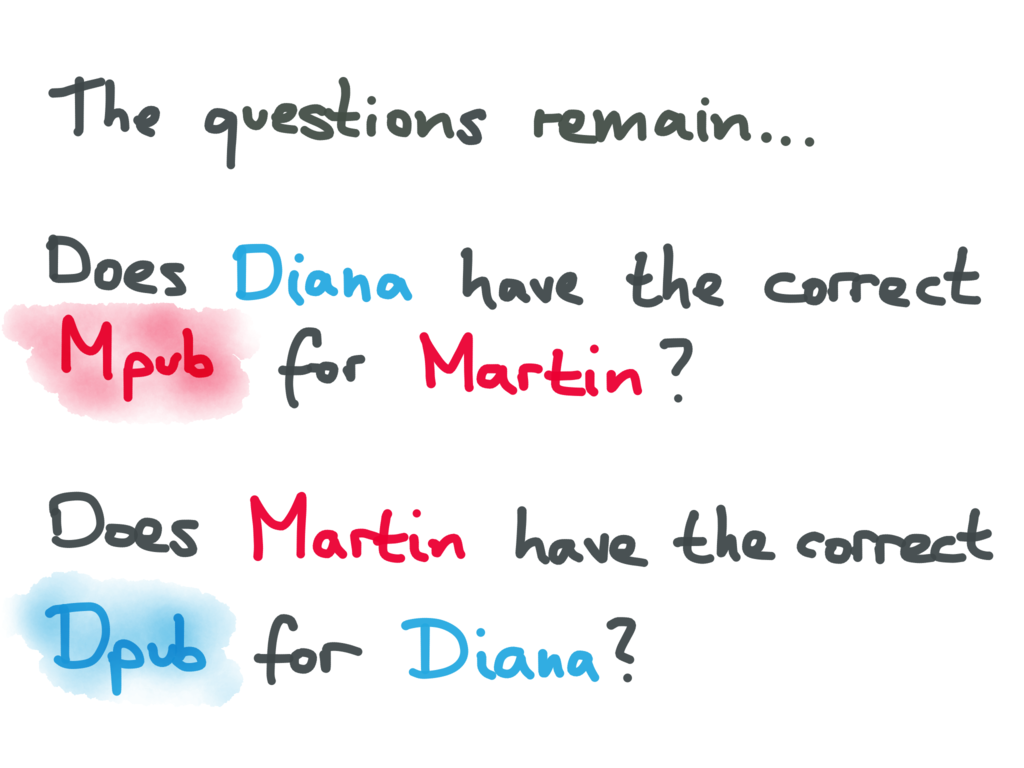 The questions remain...
Does Diana have the correct
Mpub for Martin?
Does Martin have the correct
Dpub for Diana?